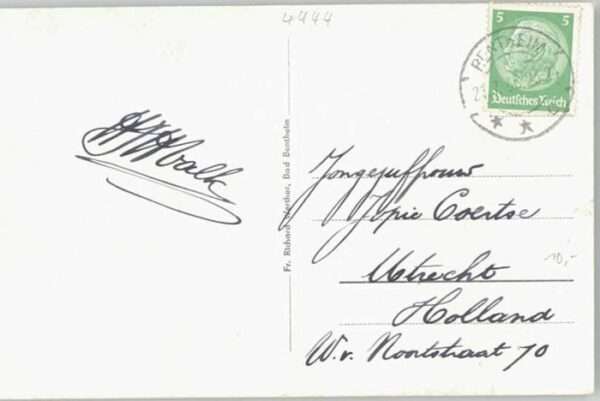 4444
5 5
Deutsches Reich
BENTHEIM
Fr. Richard Werther, Bad Bentheim
Jongejuffrouw
Jopie Coertse
Utrecht
Holland
W. v. Noortstraat 70
10,-